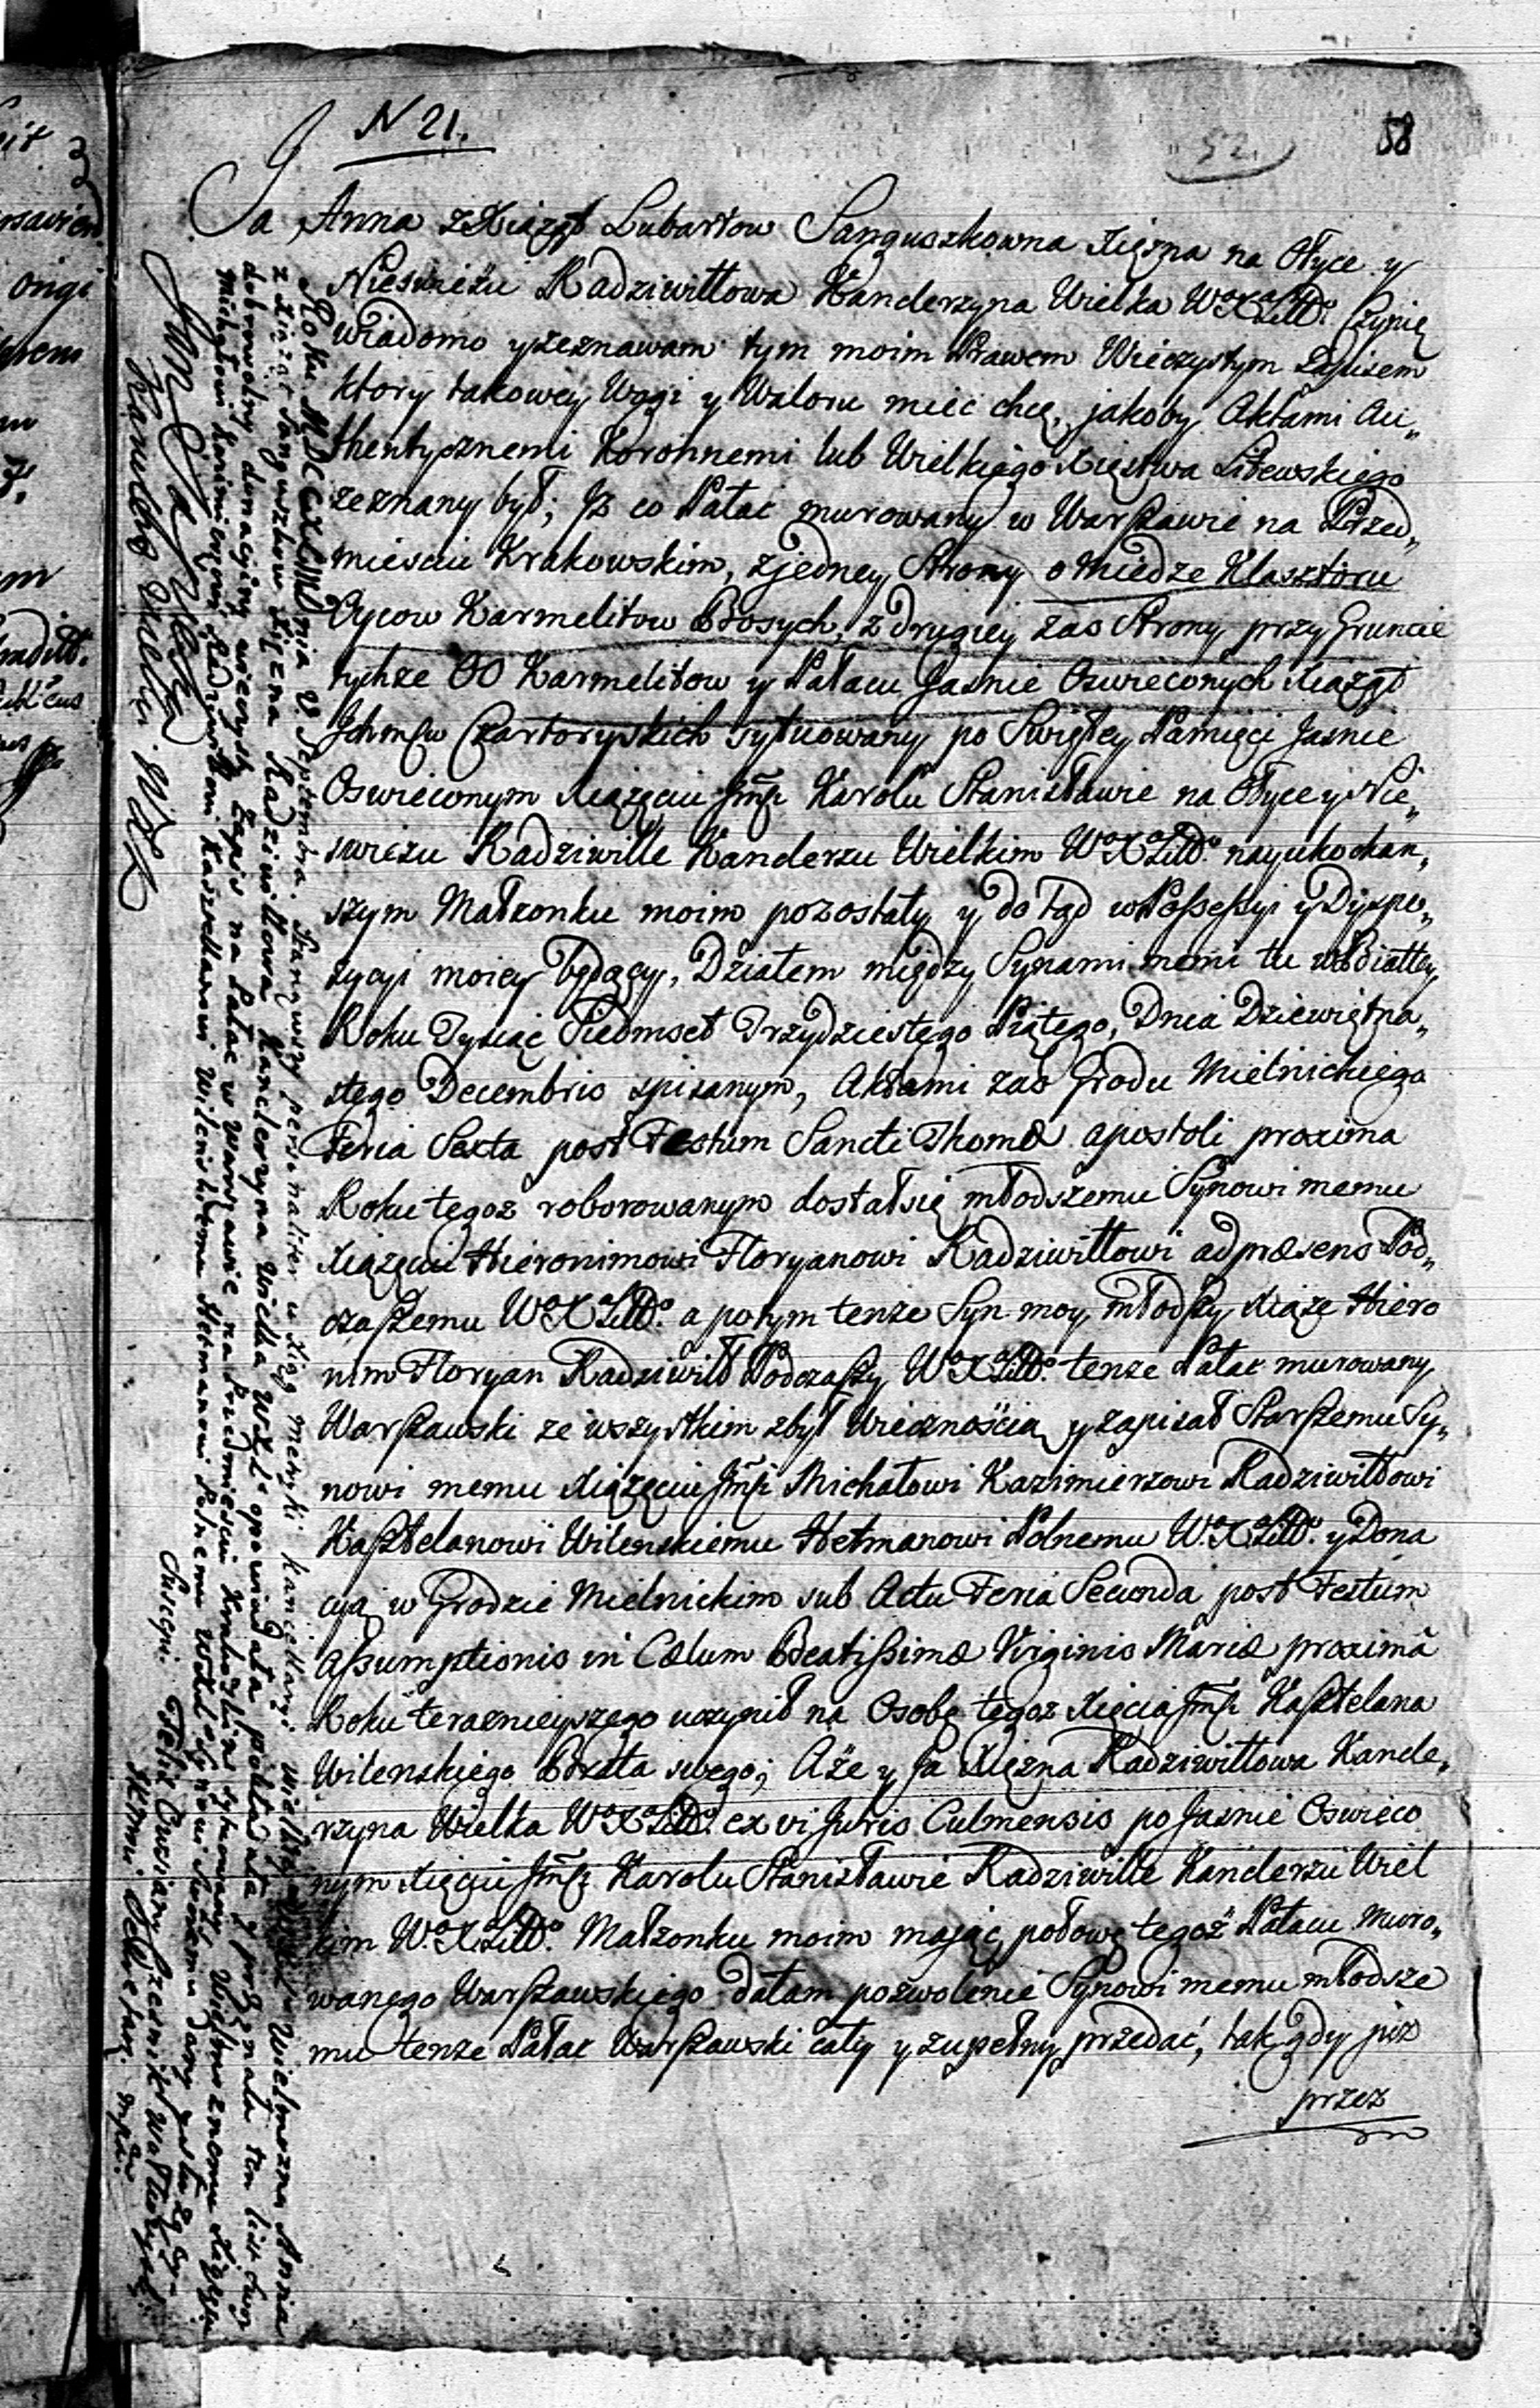 N 21.
52.
58
Ja Anna z Xiążąt Lubartow Sanguszkowna Xiężna na Ołyce y
Nieswieżu Radziwiłłowa Kanclerzyna Wielka W°X°Litt°. Czynię
wiadomo y zeznawam tym moim Prawem Wieczystym Zapisem
ktory takowey Wagi y Waloru mieć chcę, jakoby Aktami Au„
thentycznemi Koronnemi lub Wielkiego Xięstwa Litewskiego
zeznany był; Iż co Pałac murowany w Warszawie na Przed„
miesciu Krakowskim, z jedney Strony o miedze Klasztoru
Oycow Karmelitow Bosych, z drugiey zas Strony przy Gruncie
tychże OO Karmelitow y Pałacu Jasnie Oswieconych Xiążąt
Ichmciw Czartoryskich sytuowany po Swiętey Pamięci Jasnie
Oswieconym Xiążęciu Jmści Karolu Stanisławie na Ołyce y Nie„
swieżu Radziwille Kanclerzu Wielkim W°X°Litt°. nayukochan„
szym Małżonku moim pozostały y do tąd w Possessyi y Dyspo„
zycyi moiey będący, Działem między Synami memi tu w Białley
Roku Tysiąc Siedmset Trzydziestego Piątego, Dnia Dziewiętna„
stego Decembris spisanym, Aktami zas Grodu Mielnickiego
Feria Sexta post Festum Sancti Thomæ apostoli proxima
Roku tegoż roborowanym dostał się młodszemu Synowi memu
Xiążęciu Hieronimowi Floryanowi Radziwiłłowi ad præsens Pod„
czaszemu W°X°Litt°. a potym tenże Syn moy młodszy Xiąże Hiero
nim Floryan Radziwiłł Podczaszy W°X°Litt°. tenże Pałac murowany
Warszawski ze wszystkim zbył Wiecznością y zapisał Starszemu Sy„
nowi memu Xiążęciu Jmści Michałowi Kazimierzowi Radziwiłłowi
Kasztelanowi Wilenskiemu Hetmanowi Polnemu W.X°Litt°. y Dona
cyą w Grodzie Mielnickim sub Actu Feria Secunda post Festum
assumptionis in Cælum Beatissimæ Virginis Mariæ proximâ
Roku terazneyszego uczynił na Osobę tegoż Xięcia Jmści Kasztelana
Wilenskiego Brata swego; A że y Ja Xiężna Radziwiłłowa Kancle„
rzyna Wielka W°X°Litt°. ex vi Juris Culmensis po Jasnie Oswieco
nym Xięciu Jmści Karolu Stanisławie Radziwille Kanclerzu Wiel
kim W.X°Litt°. Małżonku moim mając połowę tegoż Pałacu Muro„
wanego Warszawskiego dałam pozwolenie Synowi memu młodsze
mu tenże Pałac Warszawski cały y zupełny przedać, tak gdy już
przez
Roku MDCCXLmo dnia V Septembra. Stanąwszy personaliter w Xięg metryki kancellaryi Wielmożna Anna
z Xiążąt Sanguszkow Xiężna Radziwiłłowa Kanclerzyna Wielka WXL° opowiadała pokładała y przyznała ten list swoy
dobrowolny donacyiny wieczysty Zapis na Pałac w Warszawie na Przedmiesciu Krakowskim sytuowany Wielmożnemu Xiążęciu
Michałowi Kazimierzowi Radziwiłłowi Kasztellanowi Wilenskiemu Hetmanowi Polnemu WXLit° Synowi swoiemu dany